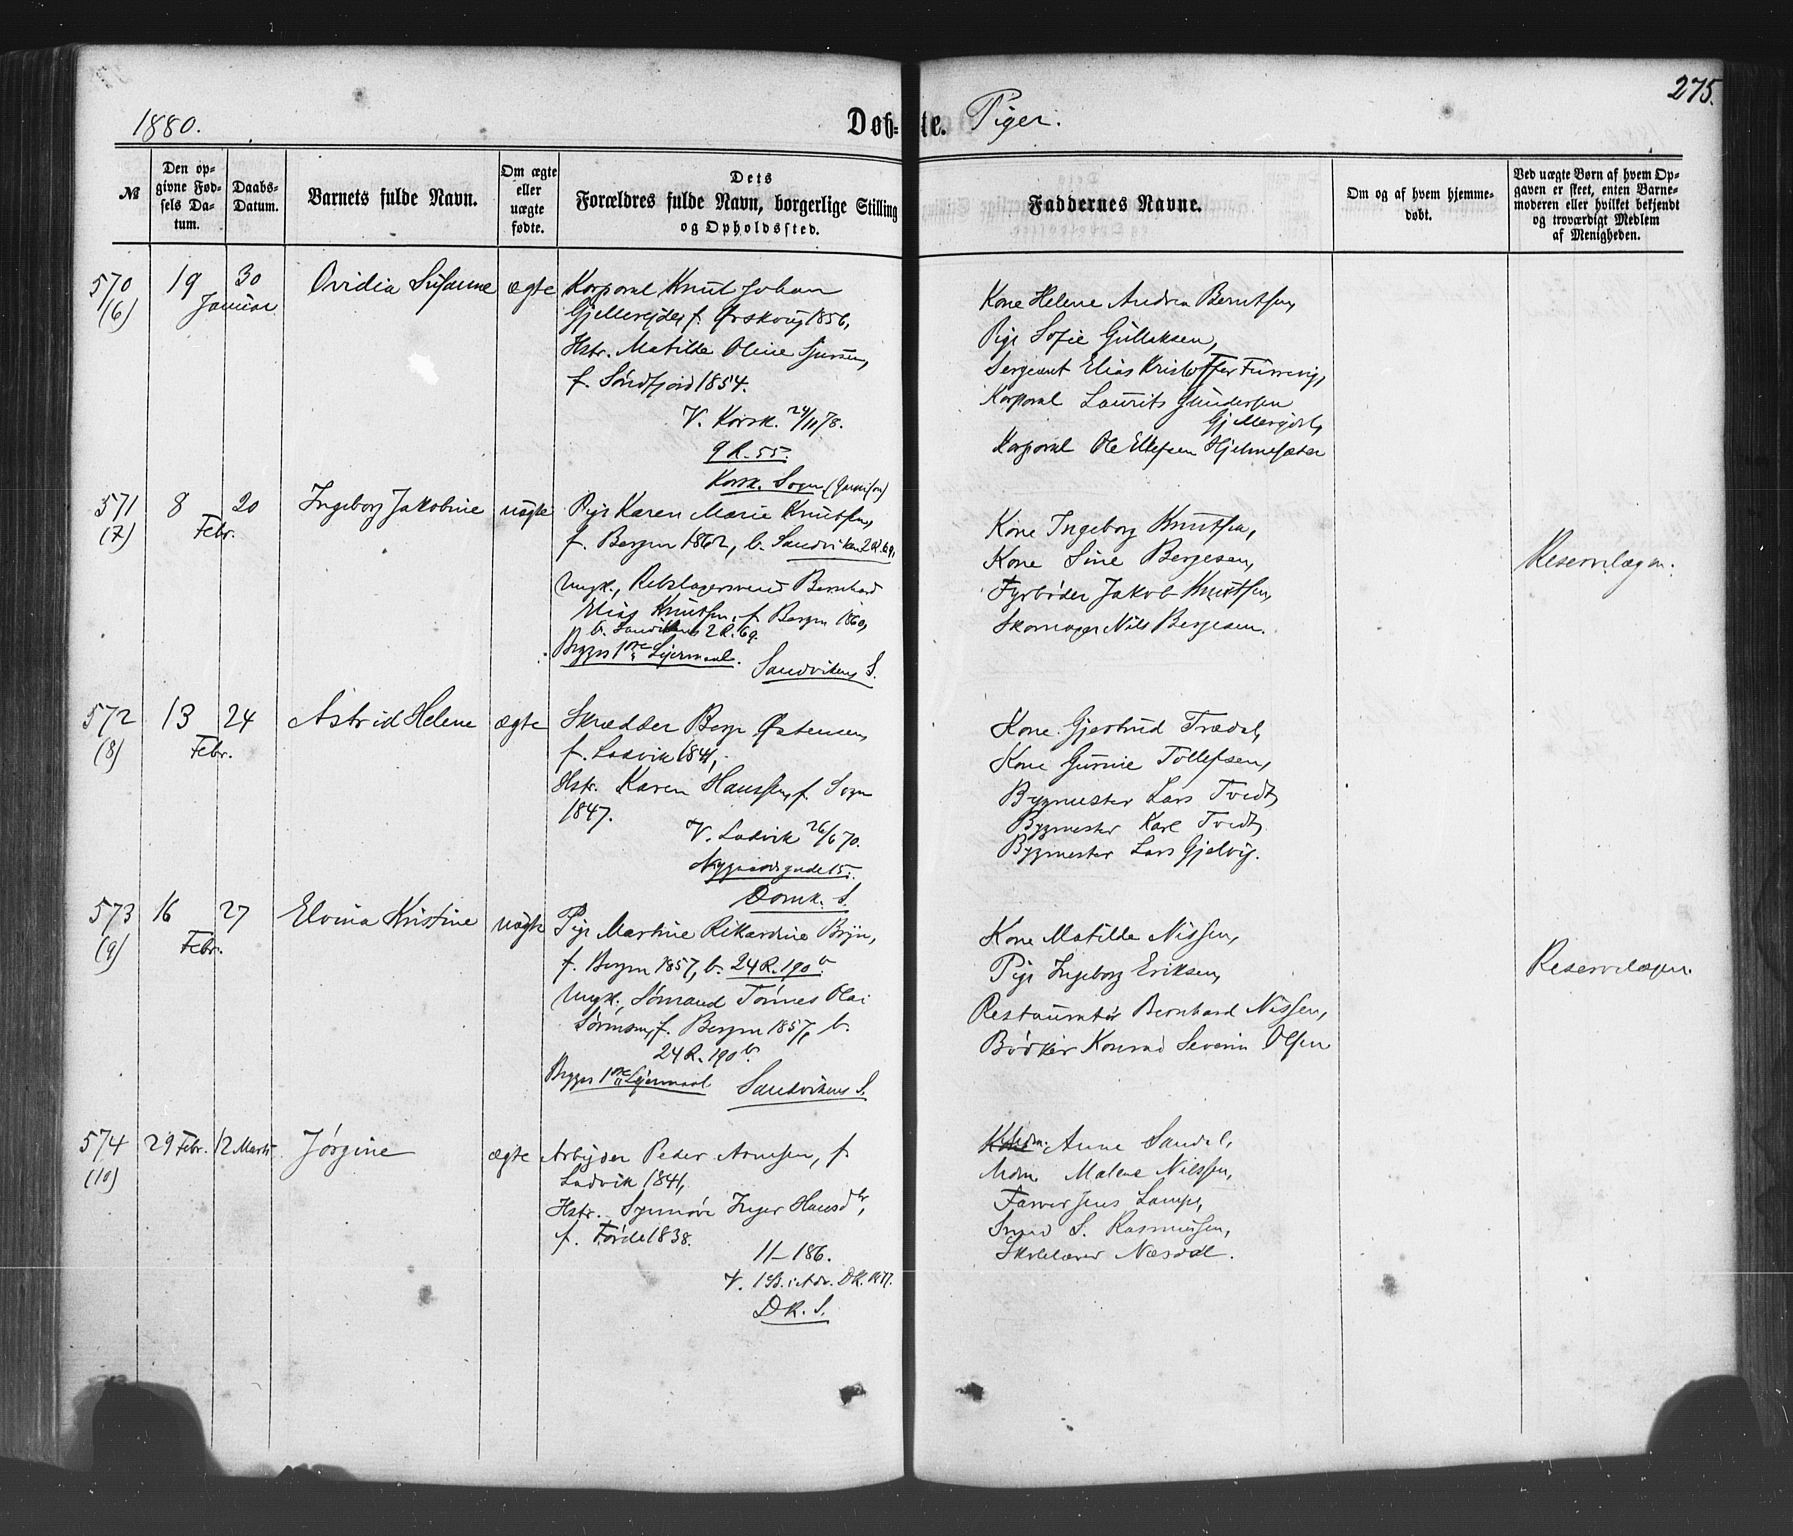 275.
1880. Døb-te. Piger.
№
Den opgivne Fødsels Datum.
Daabs-Datum.
Barnets fulde Navn.
Om ægte eller uægte fødte.
Dets Forældres fulde Navn, borgerlige Stilling og Opholdssted.
Faddernes Navne.
Om og af hvem hjemmedøbt.
Ved uægte Børn af hvem Opgaven er skeet, enten Barnemoderen eller hvilket bekjendt og troværdigt Medlem af Menigheden.
570 19 30 Ovidia Susanne ægte Korporal Knut Johan
(6) Januar
f. Ørskoug 1856,
Hstr. Matilde Oline
f. Søndfjord 1854.
V. Korsk. 24/11 78.
9 R. 55.
Korsk. Sogn (Garnison)
Kone Helene Andrea Berntsen,
Pige Sofie Gullaksen,
Sergeant Elias Kristoffer
Korporal Laurits Gundersen
Korporal Ole Ellefsen
571 8 20 Ingeborg Jakobine uægte Pige Karen Marie Knutsen,
(7) Febr.
f. Bergen 1862, b. Sandviken 2 R. 69,
Ungk., Rebslagersvend Bernhard
Elias Knutsen, f. Bergen 1860,
b. Sandviken 2 R. 69.
Begges 1ste Leiermaal. Sandvikens S.
Kone Ingeborg Knutsen,
Kone Sine Bergesen,
Fyrbøder Jakob Knutsen,
Skomager Nils Bergesen.
Reservelægen.
572 13 24 Astrid Helene ægte Skrædder Berge Østensen,
(8) Febr.
f. Ladvik 1841,
Hstr. Karen Hanssen, f. Sogn
1847.
V. Ladvik 26/6 70.
Nygaardsgade 15.
Domk. S.
Kone Gjertrud Trædal,
Kone Gurine Tollefsen,
Bygmester Lars Tvedt,
Bygmester Karl Tvedt,
Bygmester Lars Gjelvig.
573 16 27 Elvina Kristine uægte Pige Martine Rikardine Bryn,
(9) Febr.
f. Bergen 1857, b. 24 R. 190 b.
Ungk., Sømand Tønnes Olai
Sørensen, f. Bergen 1857, b.
24 R. 190 b.
Begges 1ste Leiermaal Sandvikens S.
Kone Matilde Nissen,
Pige Ingeborg Eriksen,
Restauratør Bernhard Nissen,
Bødker Konrad Severin Olsen
Reservelægen.
574 29 Febr. 12 Marts Jørgine ægte Arbeider Peder Arnesen, f.
(10)
Ladvik 1841,
Hstr. Synnøve Inger Hansdtr,
f. Førde 1838.
11 – 186.
DK. S.
Anne Sandal,
Mdm. Malene Nilssen,
Farver Jens Lampe,
Smed S. Rasmussen,
Skolelærer Næsdal.